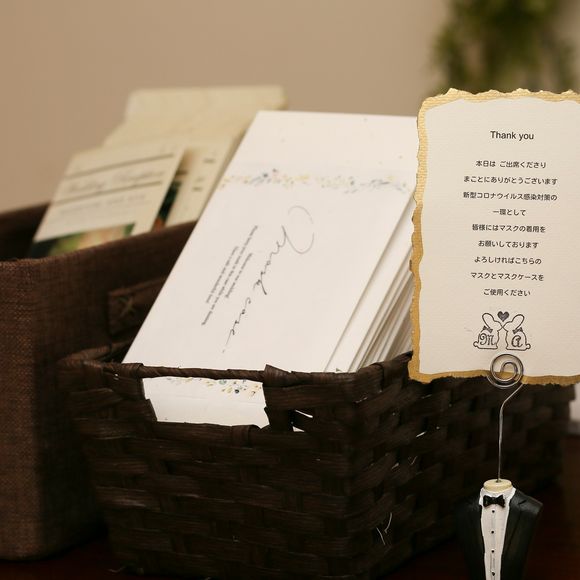 Thank you
本日は ご出席くださり
まことにありがとうございます
新型コロナウイルス感染対策の
一環として
皆様にはマスクの着用を
お願いしております
よろしければこちらの
マスクとマスクケースを
ご使用ください
M
a
Mask case